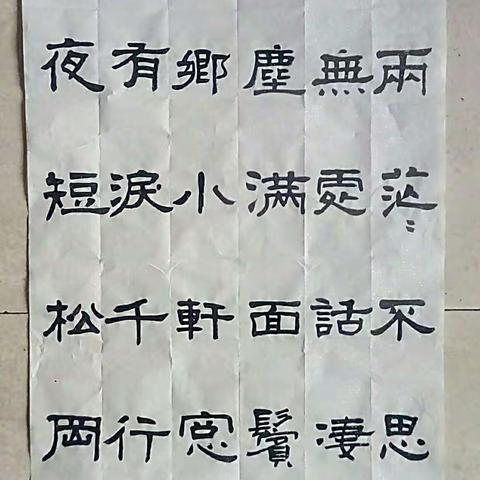 兩茫〻不思
無處話淒
塵滿面鬢
鄉小軒窓
有淚千行
夜短松岡